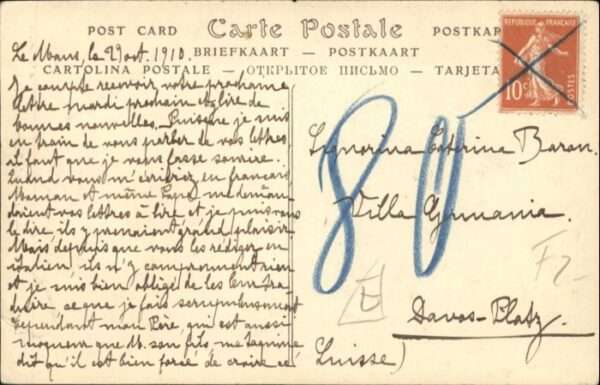 POST CARD Carte Postale POSTKAR
BRIEFKAART — POSTKAART
CARTOLINA POSTALE — ОТКРЫТОЕ ПИСЬМО — TARJETA
REPUBLIQUE FRANÇAISE
10c
POSTES
Le Mans, le 29 oct. 1910.
Je compte recevoir votre prochaine
lettre mardi prochain et lire de
bonnes nouvelles. Puisque je suis
en train de vous parler de vos lettres
il faut que je vous fasse sourire.
Quand vous m'écriviez en français
Maman et même Papa me deman-
daient vos lettres à lire et je puis vous
le dire, ils y prenaient grand plaisir.
Mais depuis que vous les rédigez en
italien, ils n'y comprennent rien
et je suis bien obligé de les leur tra
duire, ce que je fais scrupuleusement
cependant mon Père, qui est aussi
moqueur que M. son fils me taquine
dit qu'il est bien forcé de croire ce
80
Signorina Caterina Baron.
Villa Germania.
F2-
Davos-Platz.
Suisse)